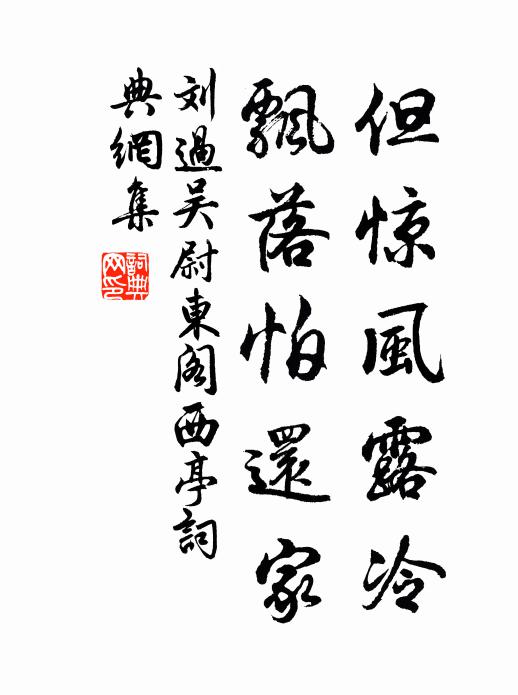 但惊風露冷
飄落怕還家
刘過吴尉東阁西亭詞
典網集
詞典
网印